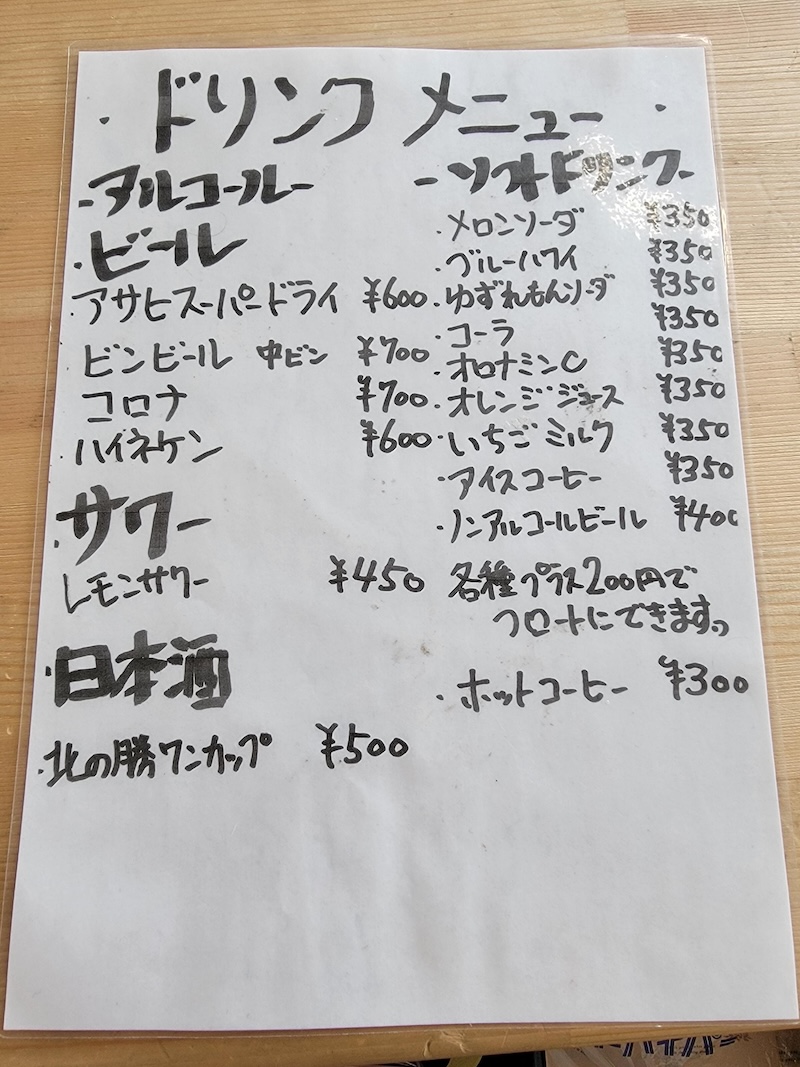 ・ドリンクメニュー・
-アルコール-
・ビール
アサヒスーパードライ ¥600
ビンビール 中ビン ¥700
コロナ ¥700
ハイネケン ¥600
・サワー
レモンサワー ¥450
・日本酒
・北の勝ワンカップ ¥500
-ソフトドリンク-
・メロンソーダ ¥350
・ブルーハワイ ¥350
・ゆずれもんソーダ ¥350
・コーラ ¥350
・オロナミンC ¥350
・オレンジジュース ¥350
・いちごミルク ¥350
・アイスコーヒー ¥350
・ノンアルコールビール ¥400
各種プラス200円で
フロートにできます。
・ホットコーヒー ¥300